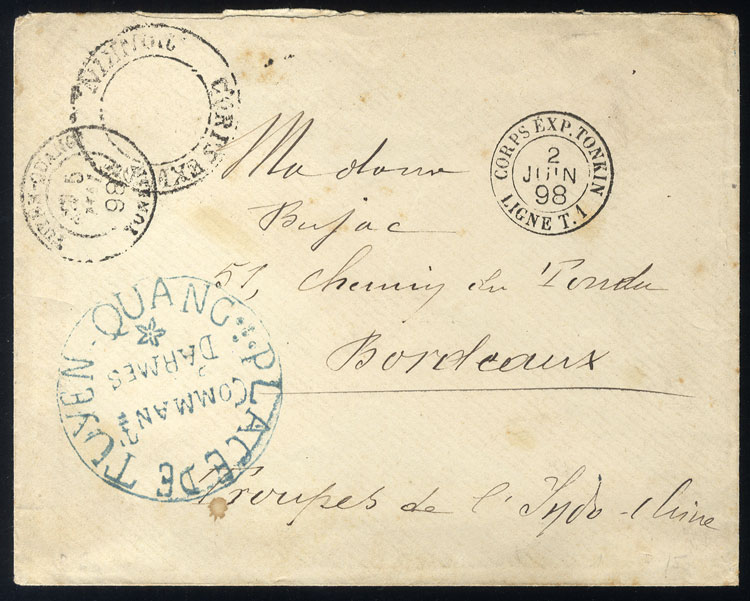 CORPS EXP. TONKIN
2
JUIN
98
LIGNE T. 1
TONKIN
TUYEN-QUANG
TONKIN
98
PLACE DE TUYEN-QUANG
COMMANT
D'ARMES
Madame
Bujac
51, Chemin du Tondu
Bordeaux
Troupes de l'Indo-Chine